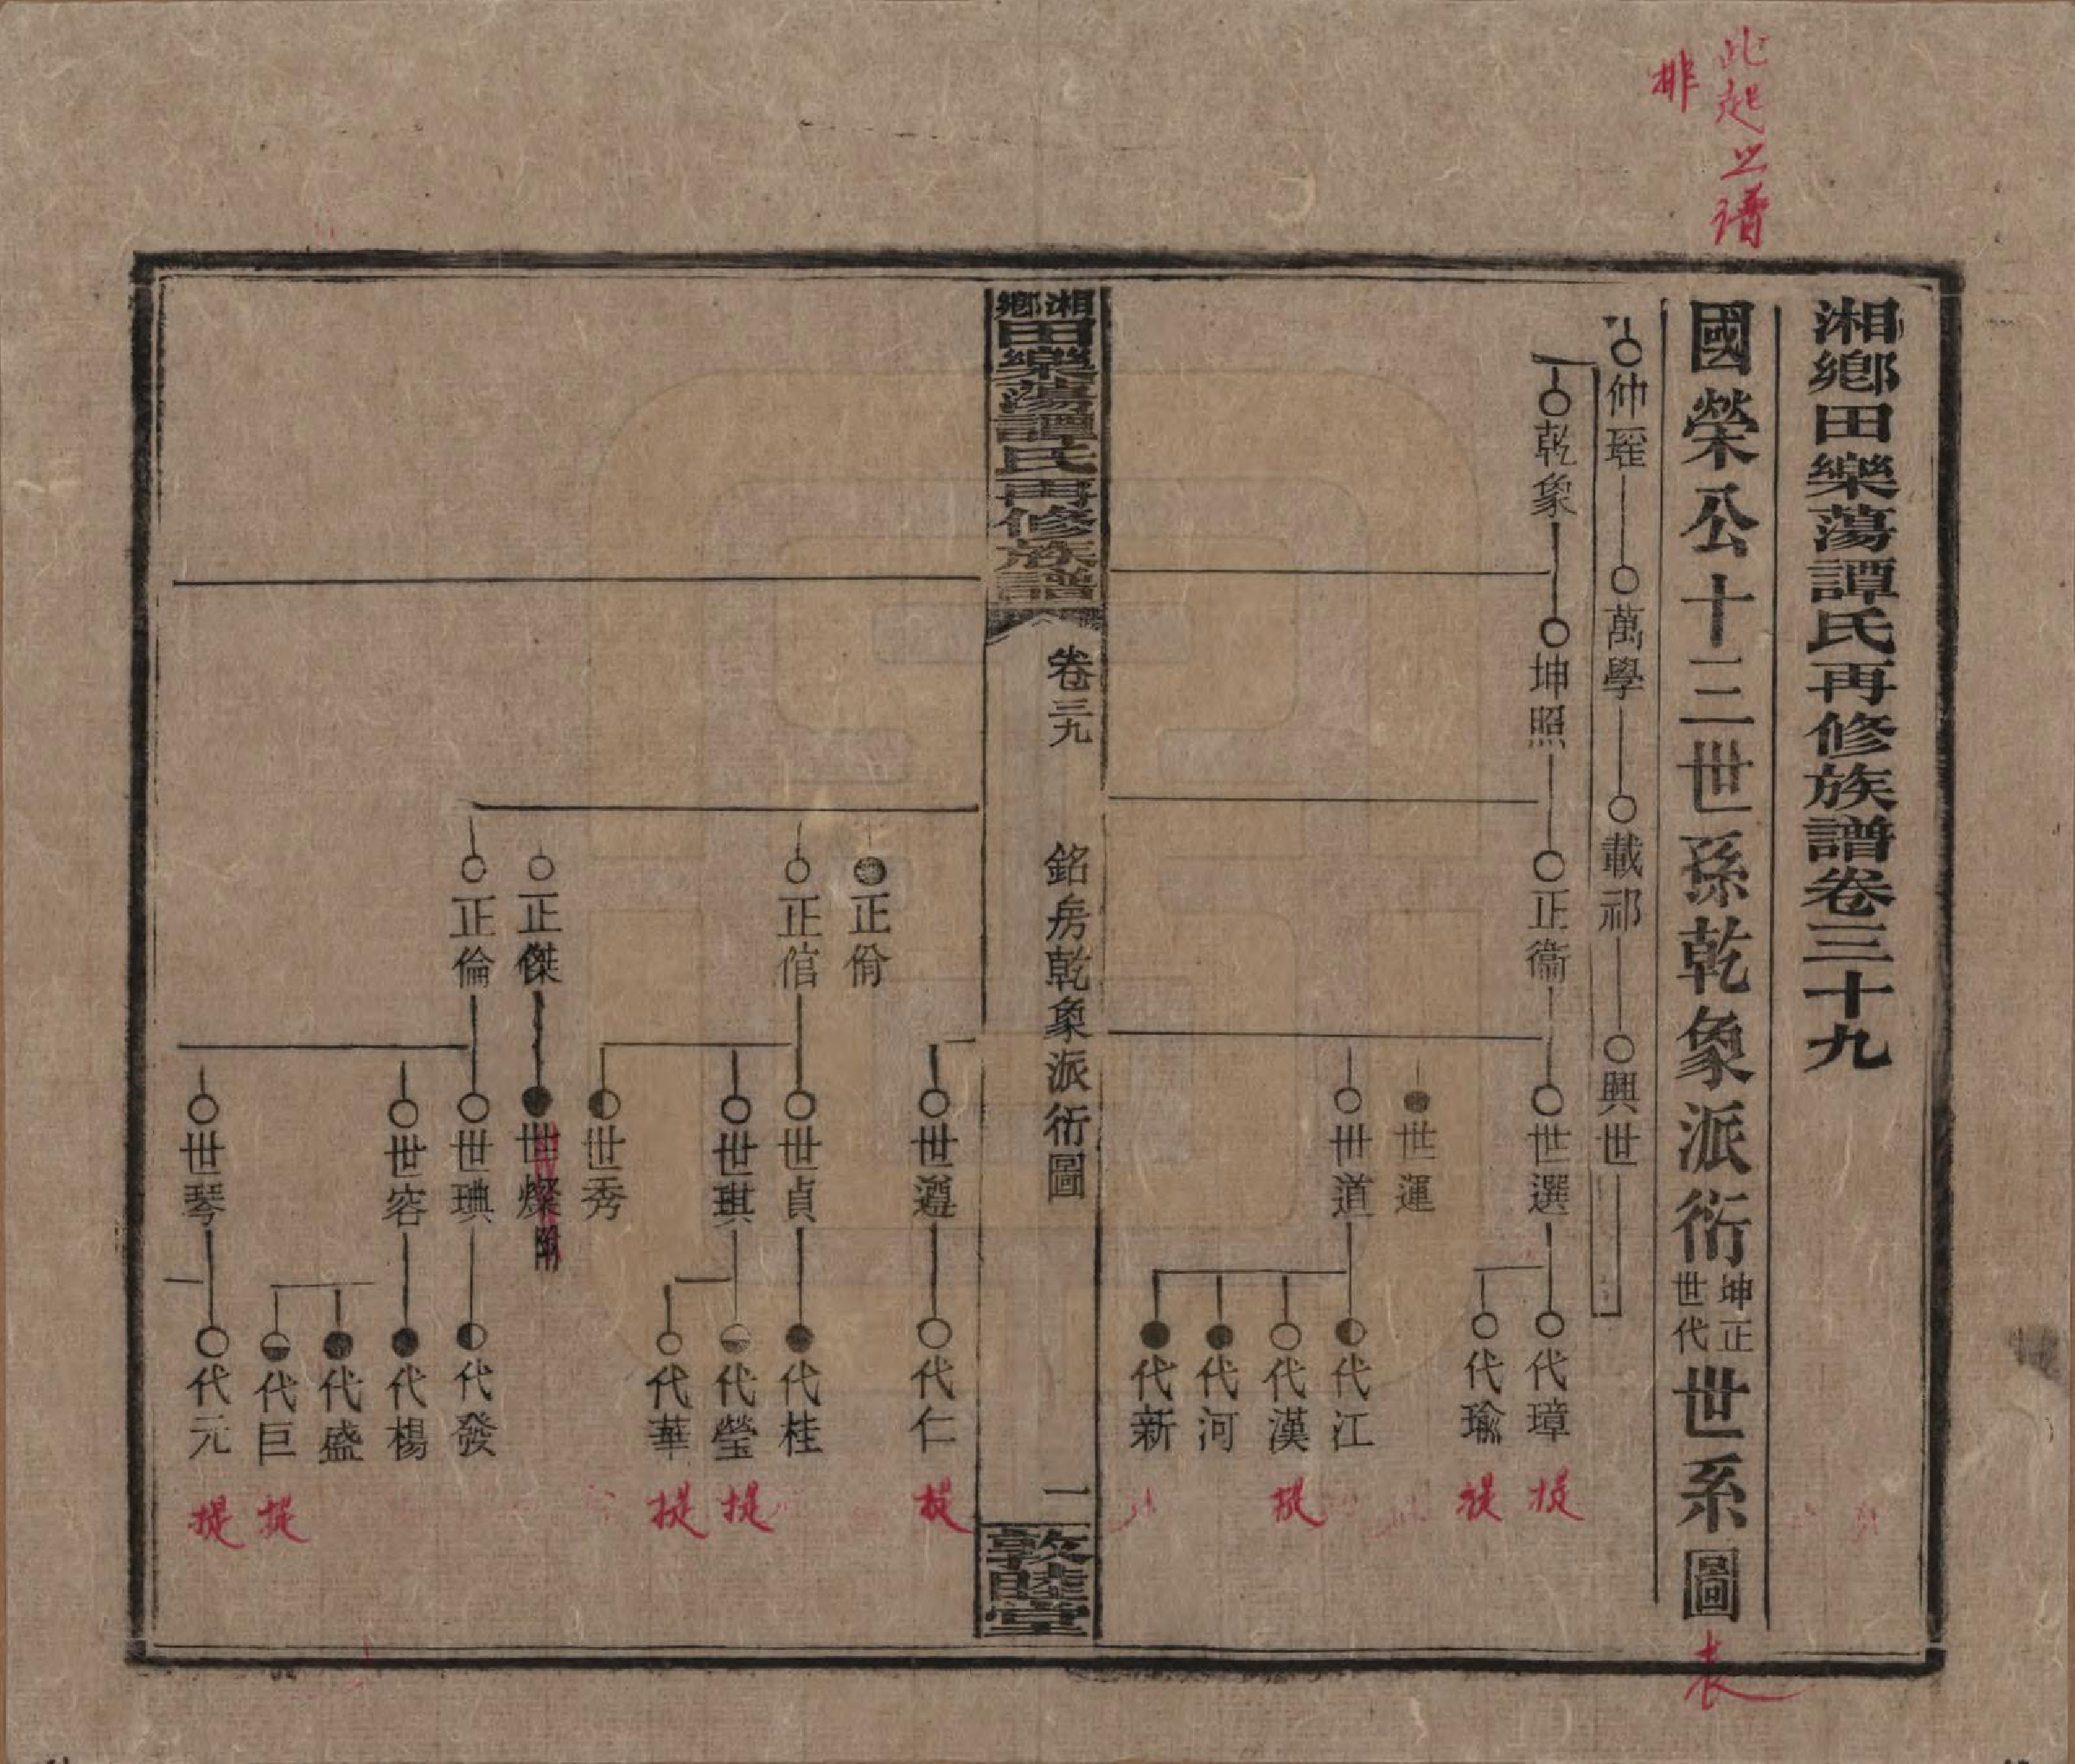 湘鄉田樂蕩譚氏再修族譜卷三十九
國榮公十三世孫乾象派衍坤正世代世系圖
表
此起之譜
排
仲瑶 萬學 載祁 興世
乾象 坤照 正衞 世選 代璋
代瑜
世運
世道 代江
代漢
代河
代新
提 提 提
湘鄉田樂蕩譚氏再修族譜 卷三九 銘房乾象派衍圖 一 敦睦堂
世遵 代仁
正佾
正倌 世貞 代桂
世琪 代瑩
代華
世秀
正傑 世燦
正倫 世琠 代發
世容 代楊
代盛
代巨
世琴 代元
提 提 提 提 提